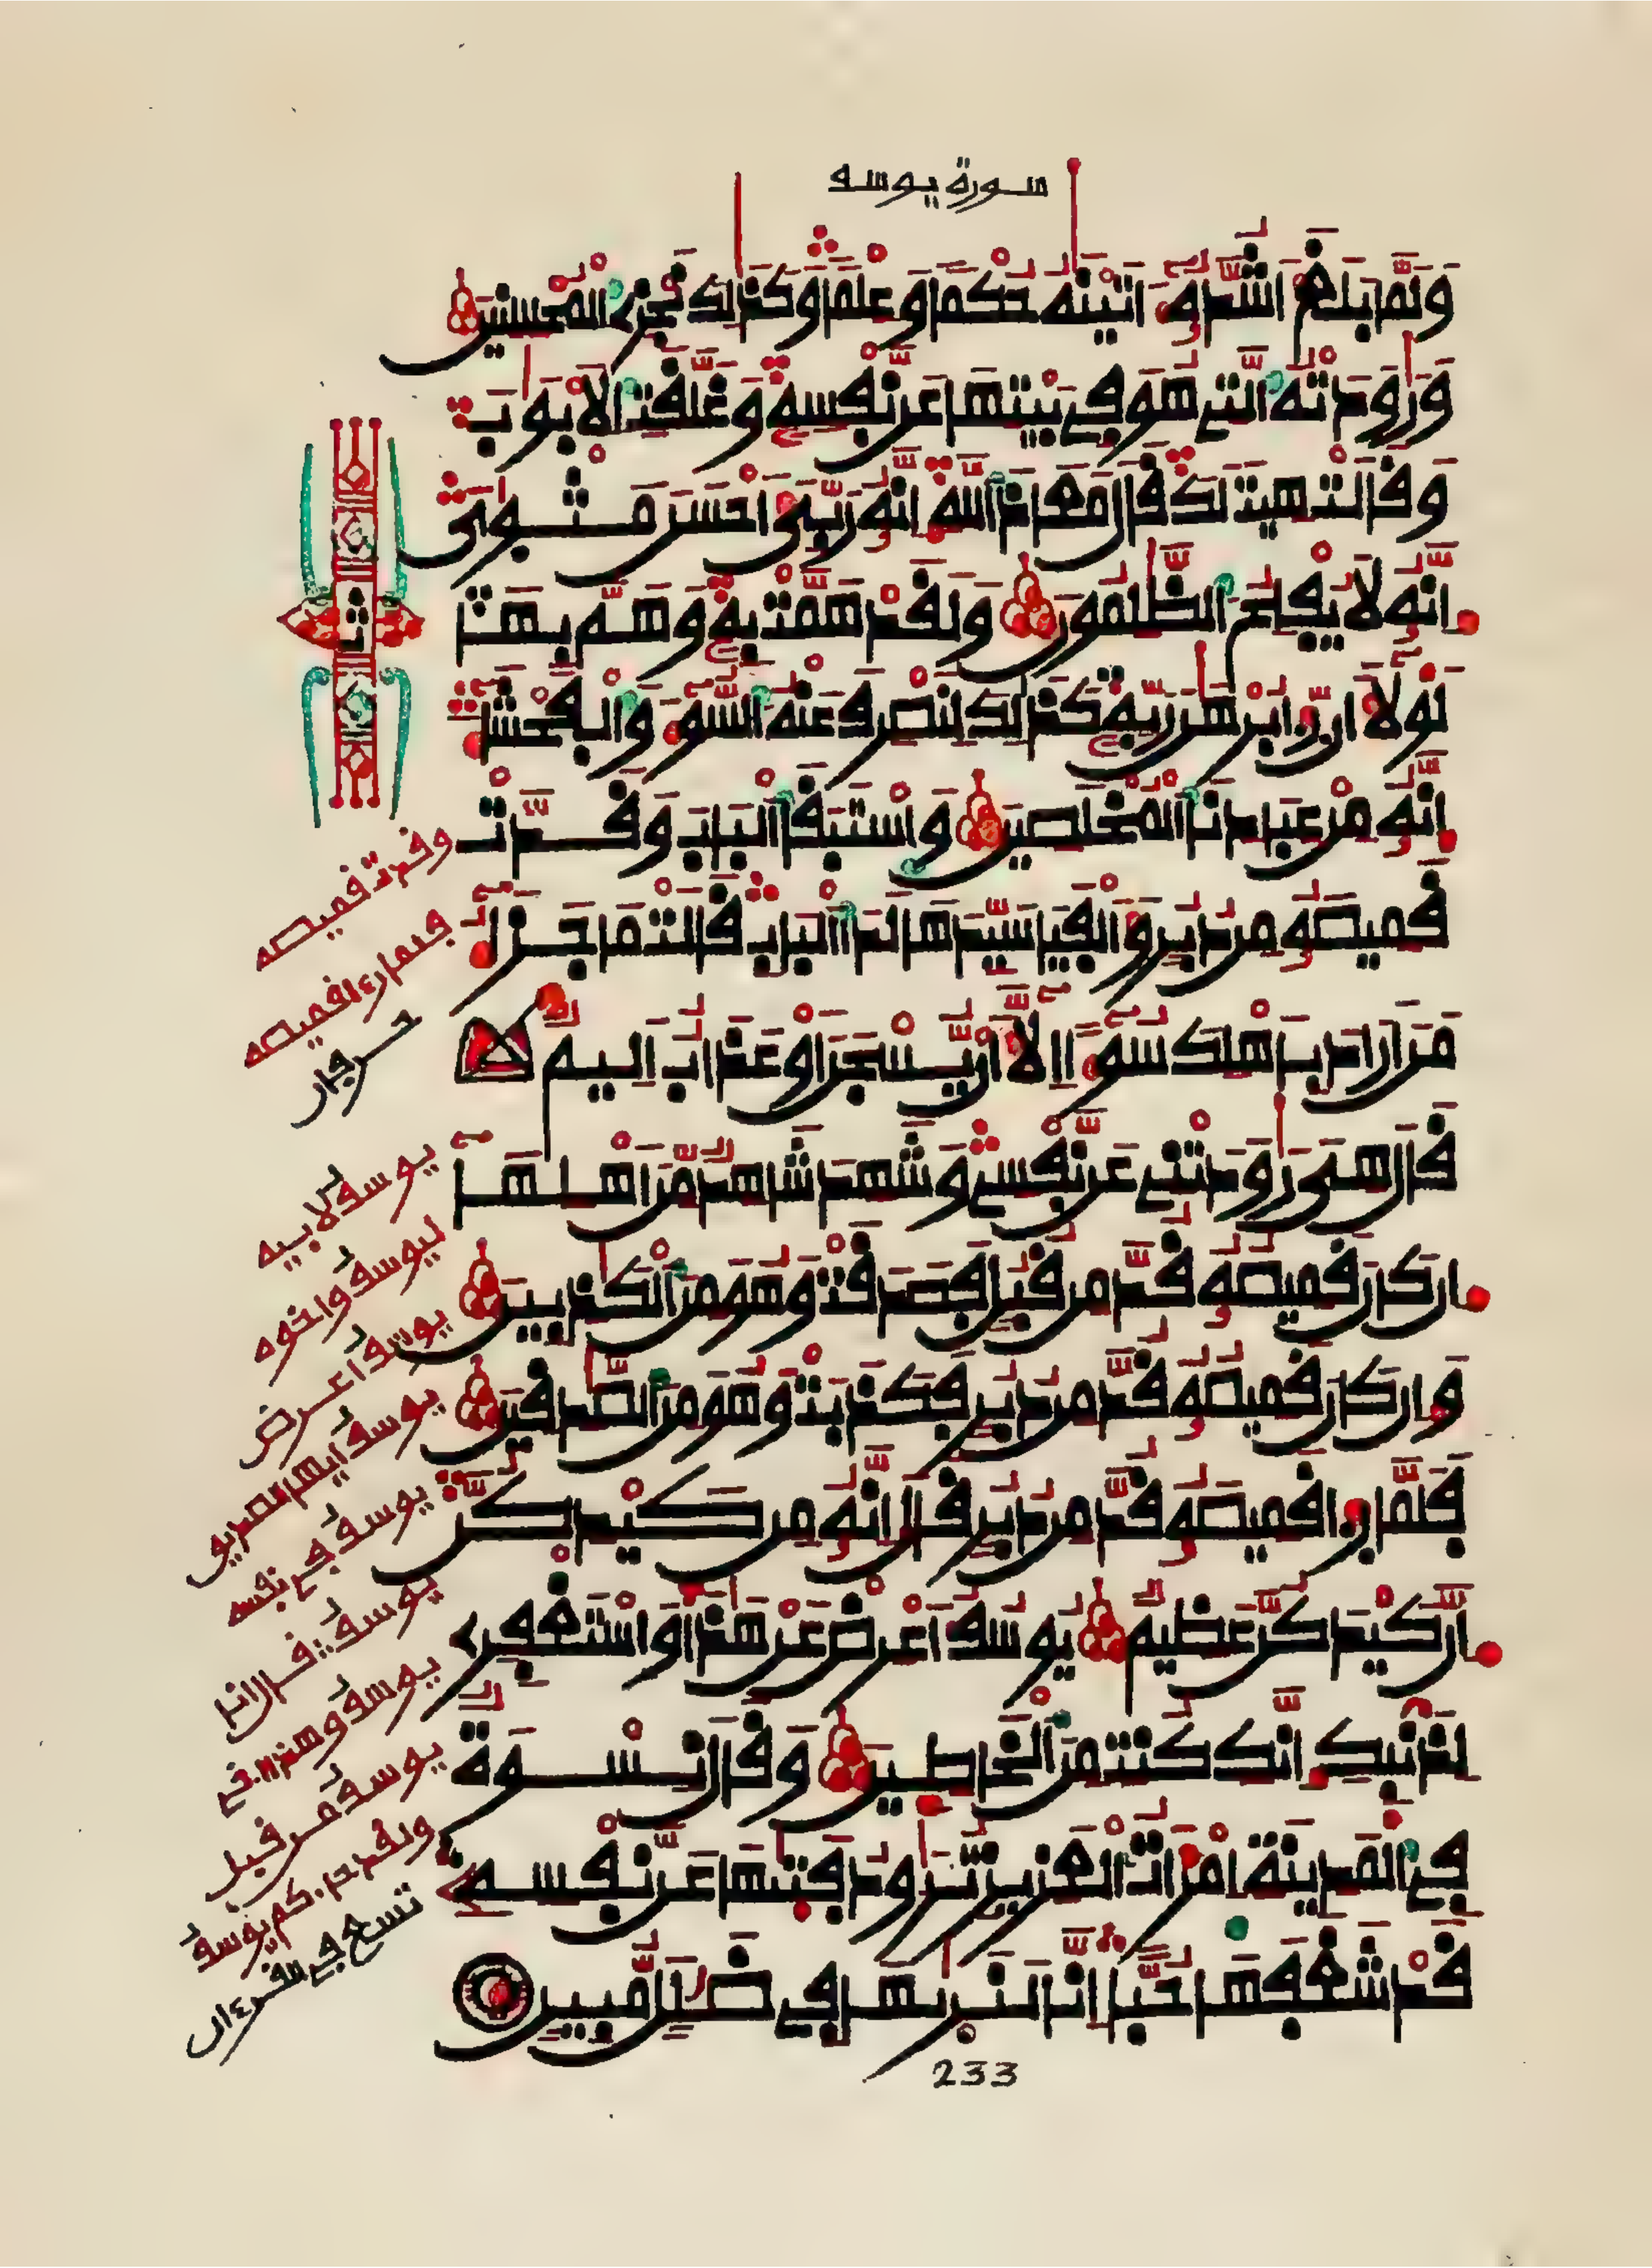 سورة يوسف
ولما بلغ اشده اتينه حكما وعلما وكذلك نجزي المحسنين
ورودته التي هو في بيتها عن نفسه وغلقت الابوب
وقالت هيت لك قال معاذ الله انه ربي احسن مثواي
انه لا يفلح الظلمون ولقد همت به وهم بها
لولا ان رءا برهن ربه كذلك لنصرف عنه السوء والفحشاء
انه من عبادنا المخلصين واستبقا الباب وقدت
قميصه من دبر والفيا سيدها لدا الباب قالت ما جزاء
من اراد باهلك سوءا الا ان يسجن او عذاب اليم
قال هي رودتني عن نفسي وشهد شاهد من اهلها
ان كان قميصه قد من قبل فصدقت وهو من الكذبين
وان كان قميصه قد من دبر فكذبت وهو من الصدقين
فلما رءا قميصه قد من دبر قال انه من كيدكن
ان كيدكن عظيم يوسف اعرض عن هذا واستغفري
لذنبك انك كنت من الخاطين وقال نسوة
في المدينة امرات العزيز ترود فتيها عن نفسه
قد شغفها حبا انا لنريها في ضلل مبين
233
ث
وقدت قميصه
فلما رءا قميصه
حرفان
يوسف لابيه
ليوسف واخوه
يوسف اعرض
يوسف ايها الصديق
يوسف في نفسه
يوسف قال انا
يوسف وهذا اخي
يوسف من قبل
ولقد جاءكم يوسف
تسع في القرءان